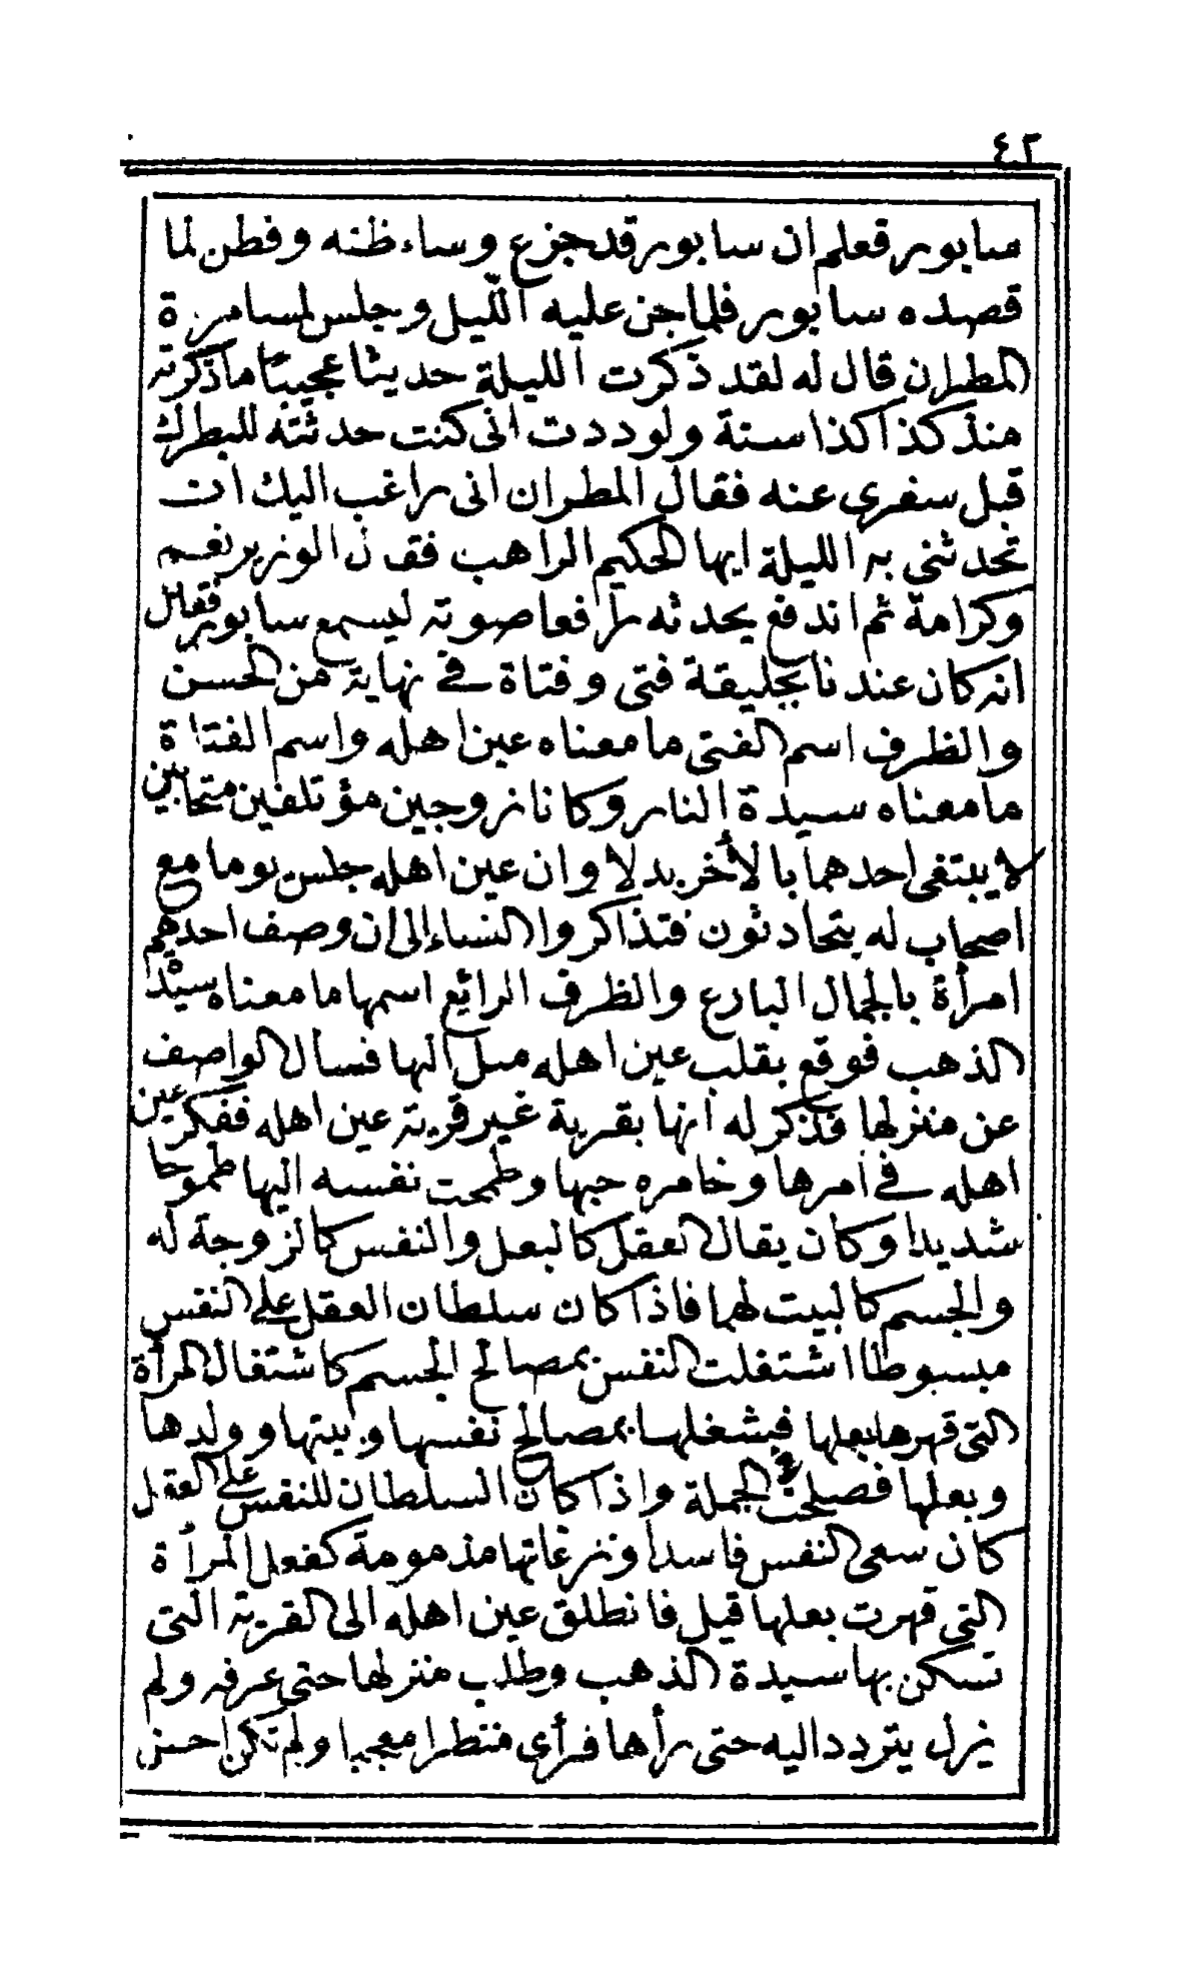 ٤٢
سابور فعلم ان سابور قد جزع وساء ظنه وفطن لما
قصده سابور فلما جن عليه الليل وجلس لمسامرة
المطران قال له لقد ذكرت الليلة حديثا عجيبا ما ذكرته
منذ كذا كذا سنة ولوددت انى كنت حدثته للبطرك
قبل سفرى عنه فقال المطران انى راغب اليك ان
تحدثنى به الليلة ايها الحكيم الراهب فقال الوزير نعم
وكرامة ثم اندفع يحدثه رافعا صوته ليسمع سابور فقال
انه كان عندنا بجليقة فتى وفتاة فى نهاية من الحسن
والظرف اسم الفتى ما معناه عين اهله واسم الفتاة
ما معناه سيدة النار وكانا زوجين مؤتلفين متحابين
لا يبتغى احدهما بالآخر بدلا وان عين اهله جلس يوما مع
اصحاب له يتحادثون فتذاكروا النساء الى ان وصف احدهم
امرأة بالجمال البارع والظرف الرائع اسمها ما معناه سيدة
الذهب فوقع بقلب عين اهله ميل اليها فسأل الواصف
عن منزلها فذكر له انها بقرية غير قرية عين اهله ففكر عين
اهله فى امرها وخامره حبها وطمحت نفسه اليها طموحا
شديدا وكان يقال العقل كالبعل والنفس كالزوجة له
والجسم كالبيت لهما فاذا كان سلطان العقل على النفس
مبسوطا اشتغلت النفس بمصالح الجسم كاشتغال المرأة
التى قهرها بعلها فيشغلها بمصالح نفسها وبيتها وولدها
وبعلها فصلحت الجملة واذا كان السلطان للنفس على العقل
كان سعى النفس فاسدا ونزغاتها مذمومة كفعل المرأة
التى قهرت بعلها قيل فانطلق عين اهله الى القرية التى
تسكن بها سيدة الذهب وطلب منزلها حتى عرفه ولم
يزل يتردد اليه حتى رأها فرأى منظرا معجبا ولم تكن احسن